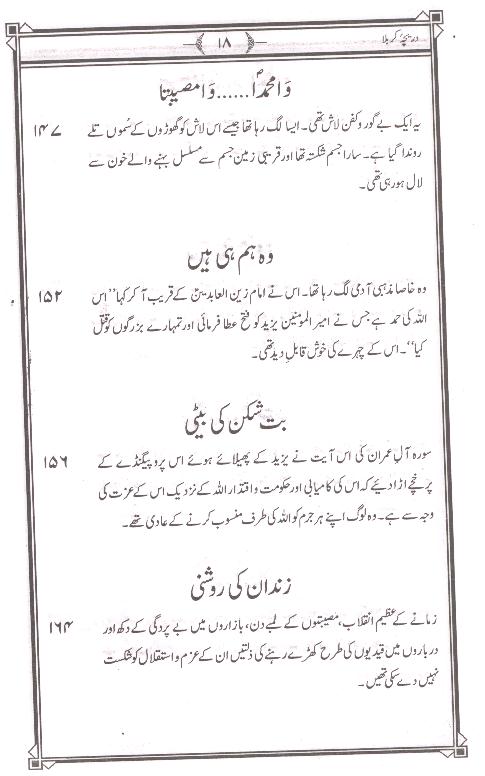 دریچۂ کربلا
۱۸
وَا محمداؐ......وَا مصیبتا
یہ ایک بے گور و کفن لاش تھی۔ ایسا لگ رہا تھا جیسے اس لاش کو گھوڑوں کے سُموں تلے ۱۴۷
روندا گیا ہے۔ سارا جسم شکستہ تھا اور قریبی زمین جسم سے مسلسل بہنے والے خون سے
لال ہو رہی تھی۔
وہ ہم ہی ہیں
وہ خاصا مذہبی آدمی لگ رہا تھا۔ اس نے امام زین العابدینؑ کے قریب آ کر کہا ’’اس ۱۵۲
اللہ کی حمد ہے جس نے امیر المومنین یزید کو فتح عطا فرمائی اور تمہارے بزرگوں کو قتل
کیا‘‘۔ اس کے چہرے کی خوشی قابلِ دید تھی۔
بت شکن کی بیٹی
سورہ آلِ عمران کی اس آیت نے یزید کے پھیلائے ہوئے اس پروپیگنڈے کے ۱۵۶
پرخچے اڑا دیئے کہ اس کی کامیابی اور حکومت و اقتدار اللہ کے نزدیک اس کے عزت کی
وجہ سے ہے۔ وہ لوگ اپنے ہر جرم کو اللہ کی طرف منسوب کرنے کے عادی تھے۔
زندان کی روشنی
زمانے کے عظیم انقلاب، مصیبتوں کے لمبے دن، بازاروں میں بے پردگی کے دکھ اور ۱۶۴
درباروں میں قیدیوں کی طرح کھڑے رہنے کی ذلتیں ان کے عزم و استقلال کو شکست
نہیں دے سکی تھیں۔